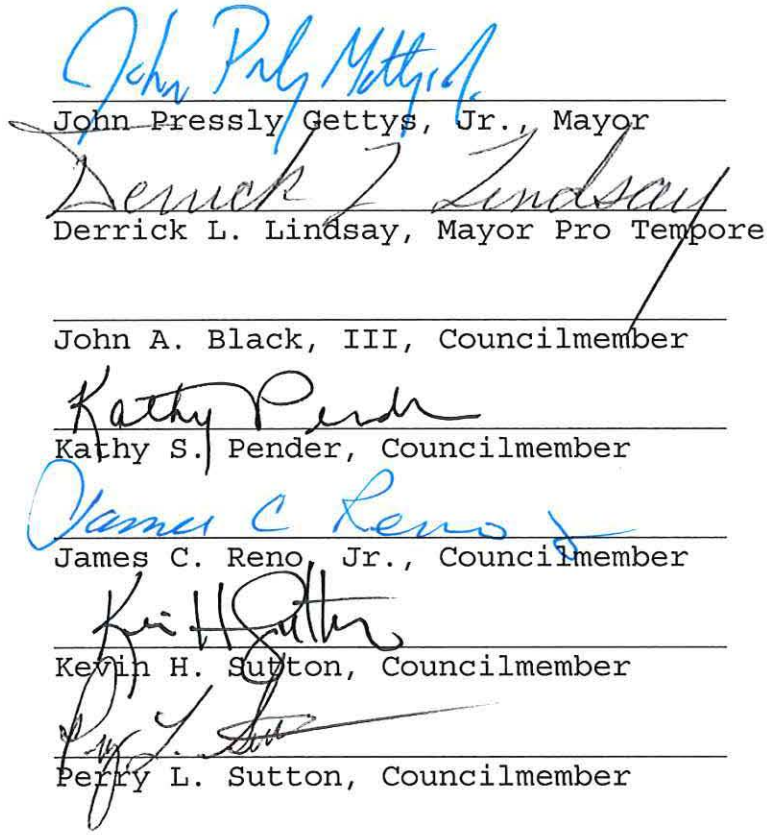 John
John Pressly Gettys, Jr., Mayor
Derrick L Lindsay
Derrick L. Lindsay, Mayor Pro Tempore
John A. Black, III, Councilmember
Kathy Pender
Kathy S. Pender, Councilmember
James C Reno Jr
James C. Reno, Jr., Councilmember
Kevin H Sutton
Kevin H. Sutton, Councilmember
L.
Perry L. Sutton, Councilmember